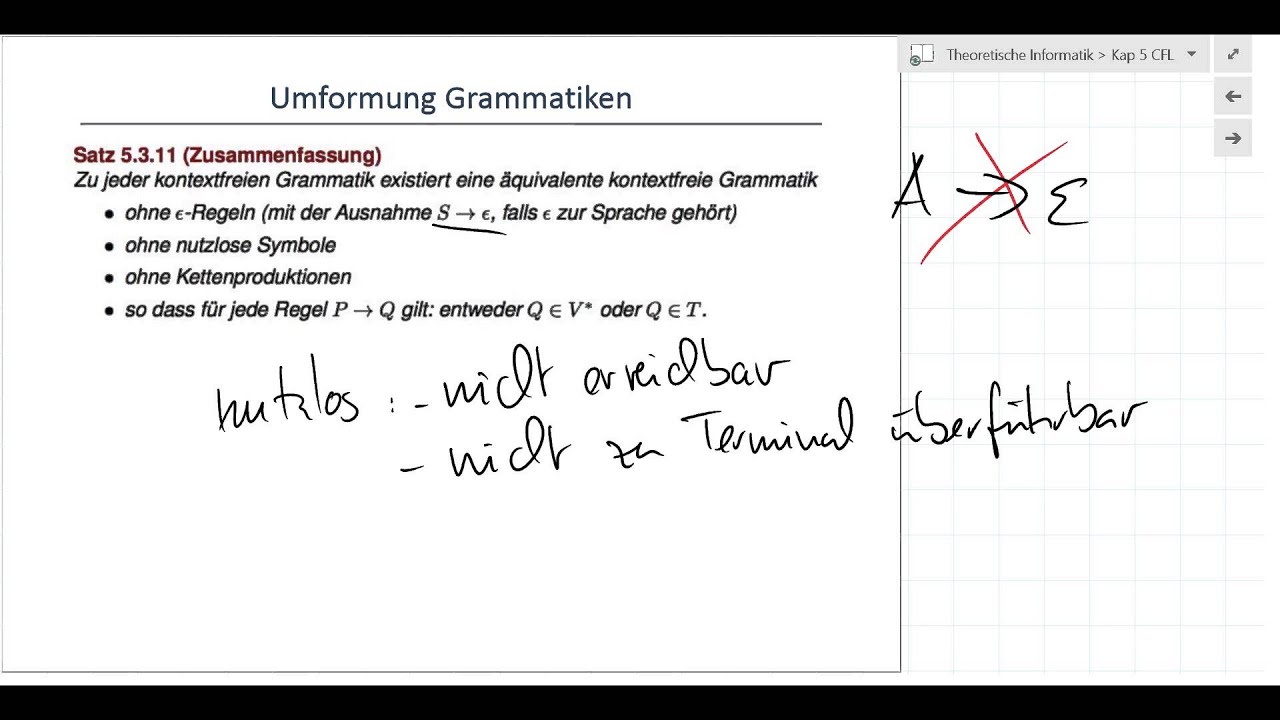 Theoretische Informatik > Kap 5 CFL
Umformung Grammatiken
Satz 5.3.11 (Zusammenfassung)
Zu jeder kontextfreien Grammatik existiert eine äquivalente kontextfreie Grammatik
• ohne ϵ-Regeln (mit der Ausnahme S → ϵ, falls ϵ zur Sprache gehört)
• ohne nutzlose Symbole
• ohne Kettenproduktionen
• so dass für jede Regel P → Q gilt: entweder Q ∈ V* oder Q ∈ T.
A → ε
nutzlos : - nicht erreichbar
- nicht zu Terminal überführbar